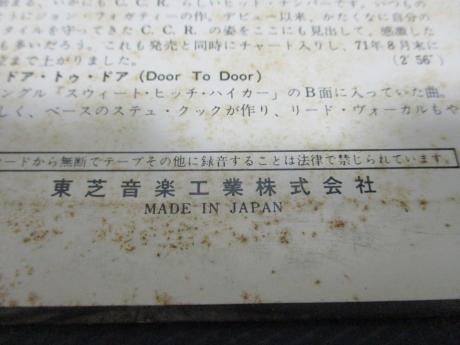 まる、いかにも C. C. R. らしいヒット・ナンバーです。いつもの
ジョン・フォガティーの作。デビュー以来、かたくなに自分の
タイルを守ってきた C. C. R. の姿をここにも見出して、感激した
も多いだろう。これも発売と同時にチャート入りし、71年8月末に
位まで上がりました。 (2′56″)
ドア・トゥ・ドア (Door To Door)
ングル「スウィート・ヒッチ・ハイカー」のB面に入っていた曲。
しく、ベースのステュ・クックが作り、リード・ヴォーカルもや
ードから無断でテープその他に録音することは法律で禁じられています。
東芝音楽工業株式会社
MADE IN JAPAN